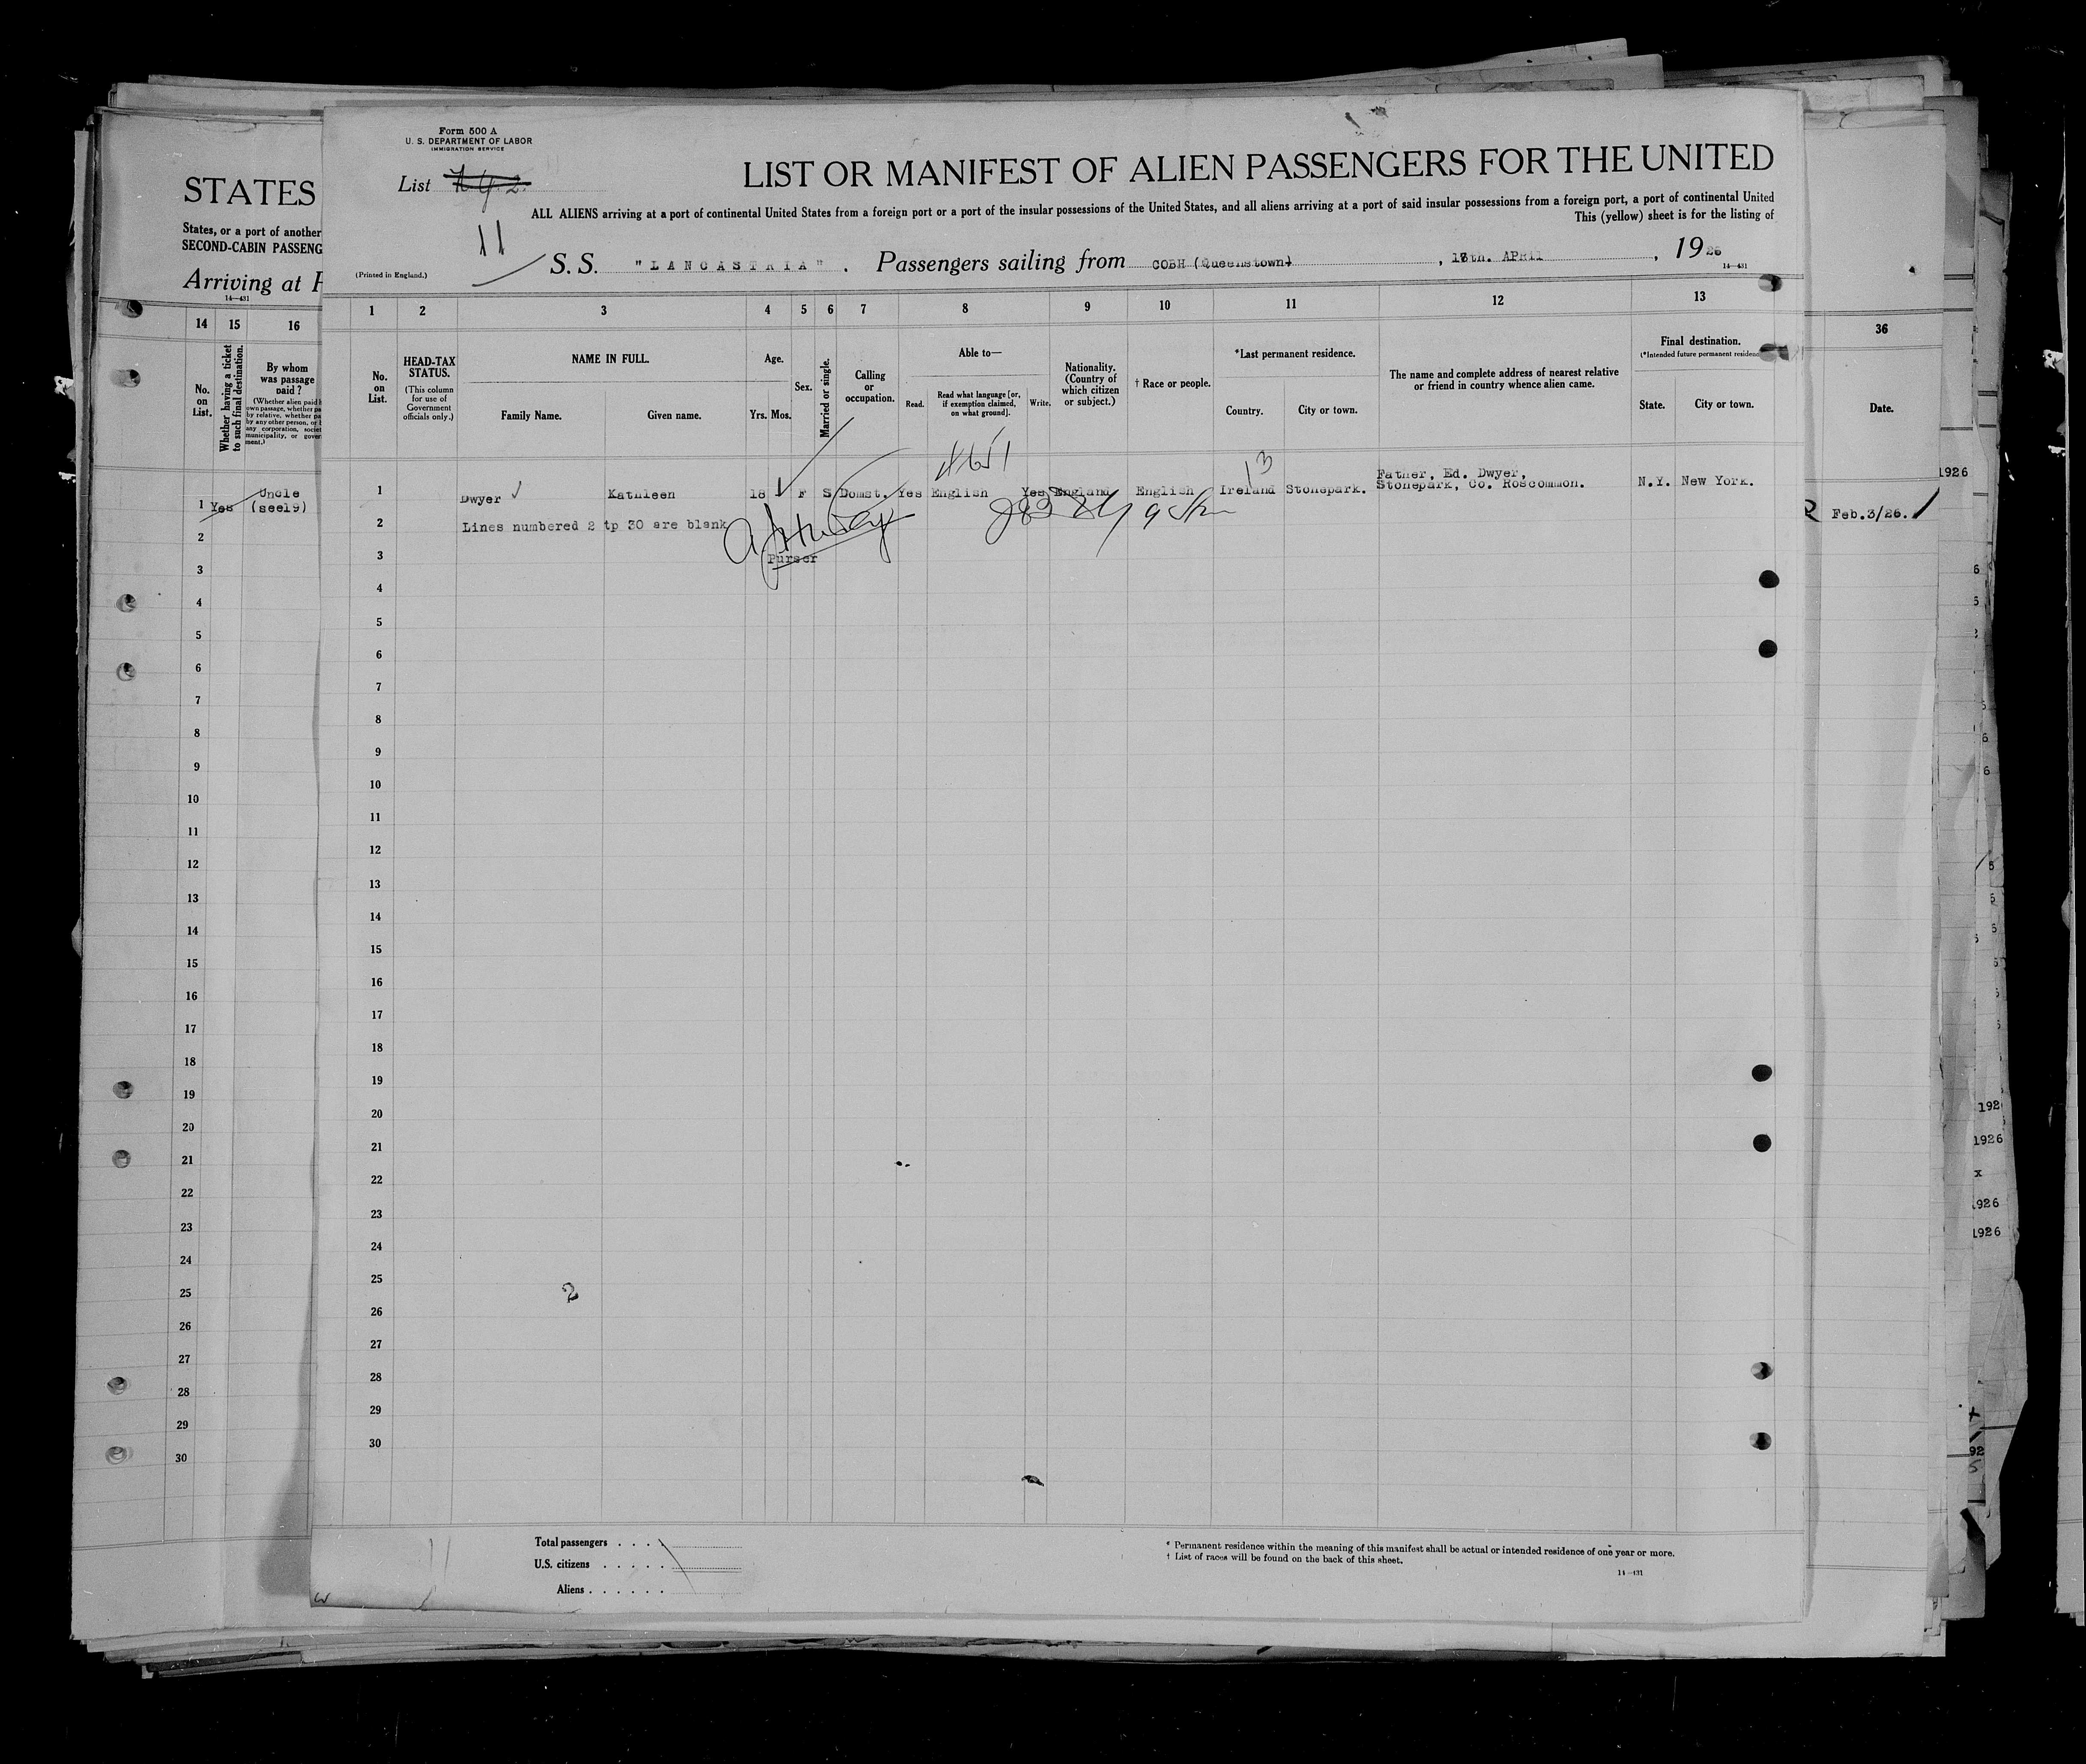 Form 500 A
U. S. DEPARTMENT OF LABOR
IMMIGRATION SERVICE
List
11
LIST OR MANIFEST OF ALIEN PASSENGERS FOR THE UNITED
ALL ALIENS arriving at a port of continental United States from a foreign port or a port of the insular possessions of the United States, and all aliens arriving at a port of said insular possessions from a foreign port, a port of continental United
This (yellow) sheet is for the listing of
(Printed in England.)
S. S. "LANCASTRIA". Passengers sailing from COBH (Queenstown), APRIL, 1926
14—431
STATES
States, or a port of another
SECOND-CABIN PASSENG
Arriving at
14—431
14 15 16
No. on List.
Whether having a ticket to such final destination.
By whom was passage paid?
1 Yes Uncle
(see19)
2
3
4
5
6
7
8
9
10
11
12
13
14
15
16
17
18
19
20
21
22
23
24
25
26
27
28
29
30
1 2 3 4 5 6 7 8 9 10 11 12 13
No. on List.
HEAD-TAX STATUS.
(This column for use of Government officials only.)
NAME IN FULL.
Family Name. Given name.
Age.
Yrs. Mos.
Sex.
Married or single.
Calling or occupation.
Able to—
Read. Read what language [or, if exemption claimed, on what ground]. Write.
Nationality. (Country of which citizen or subject.)
† Race or people.
*Last permanent residence.
Country. City or town.
The name and complete address of nearest relative or friend in country whence alien came.
Final destination.
(*Intended future permanent residen
State. City or town.
13
1 Dwyer Kathleen 18 F S Domst. Yes English Yes England English Ireland Stonepark. Father, Ed. Dwyer,
Stonepark, Co. Roscommon. N.Y. New York.
2 Lines numbered 2 tp 30 are blank
3 Purser
4
5
6
7
8
9
10
11
12
13
14
15
16
17
18
19
20
21
22
23
24
25
26
27
28
29
30
2
Total passengers . . . .
U.S. citizens . . . . .
Aliens . . . . . .
* Permanent residence within the meaning of this manifest shall be actual or intended residence of one year or more.
† List of races will be found on the back of this sheet.
14—431
36
Date.
Feb.3/26.
1926
192
1926
x
1926
1926